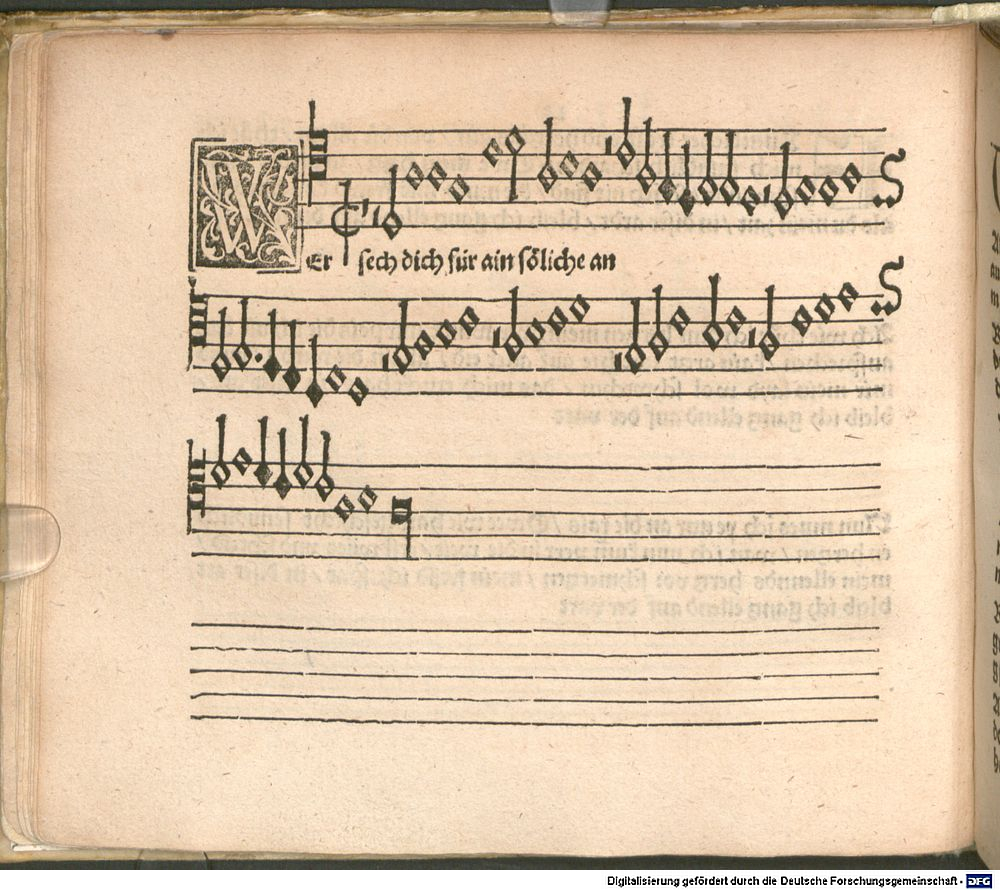 WEr sech dich für ain söliche an
Digitalisierung gefördert durch die Deutsche Forschungsgemeinschaft - DFG